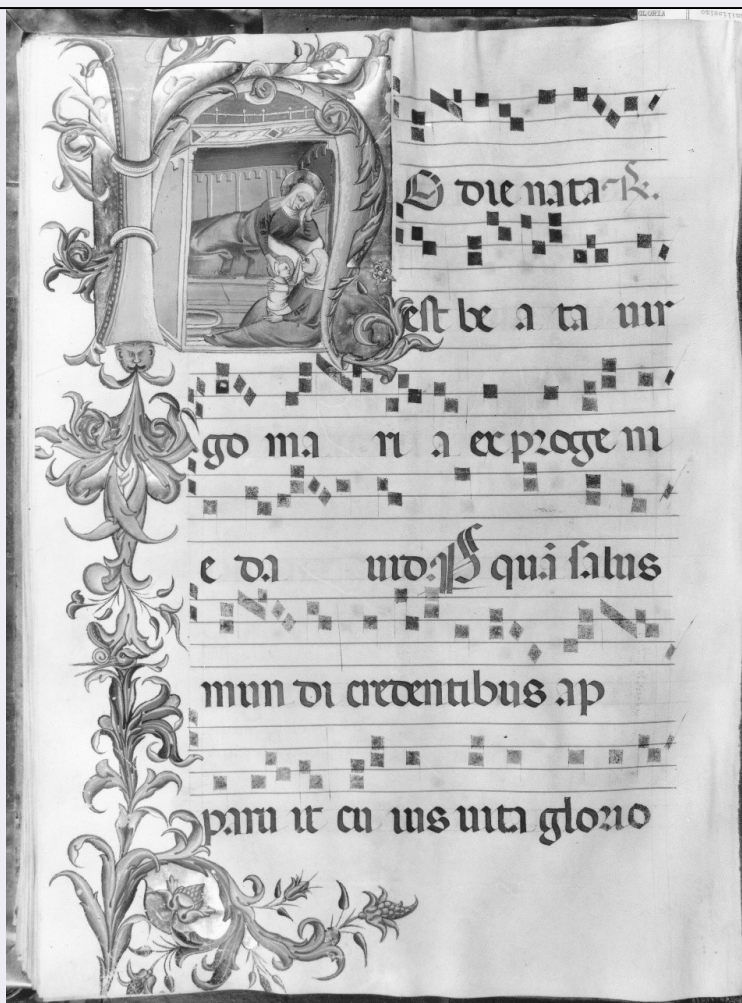 GLORIA
HOdie nata ℟.
est be a ta uir
go ma ri a ex proge ni
e da uid. ℟ Per quā salus
mun di credentibus ap
paru it cu ius uita glorio